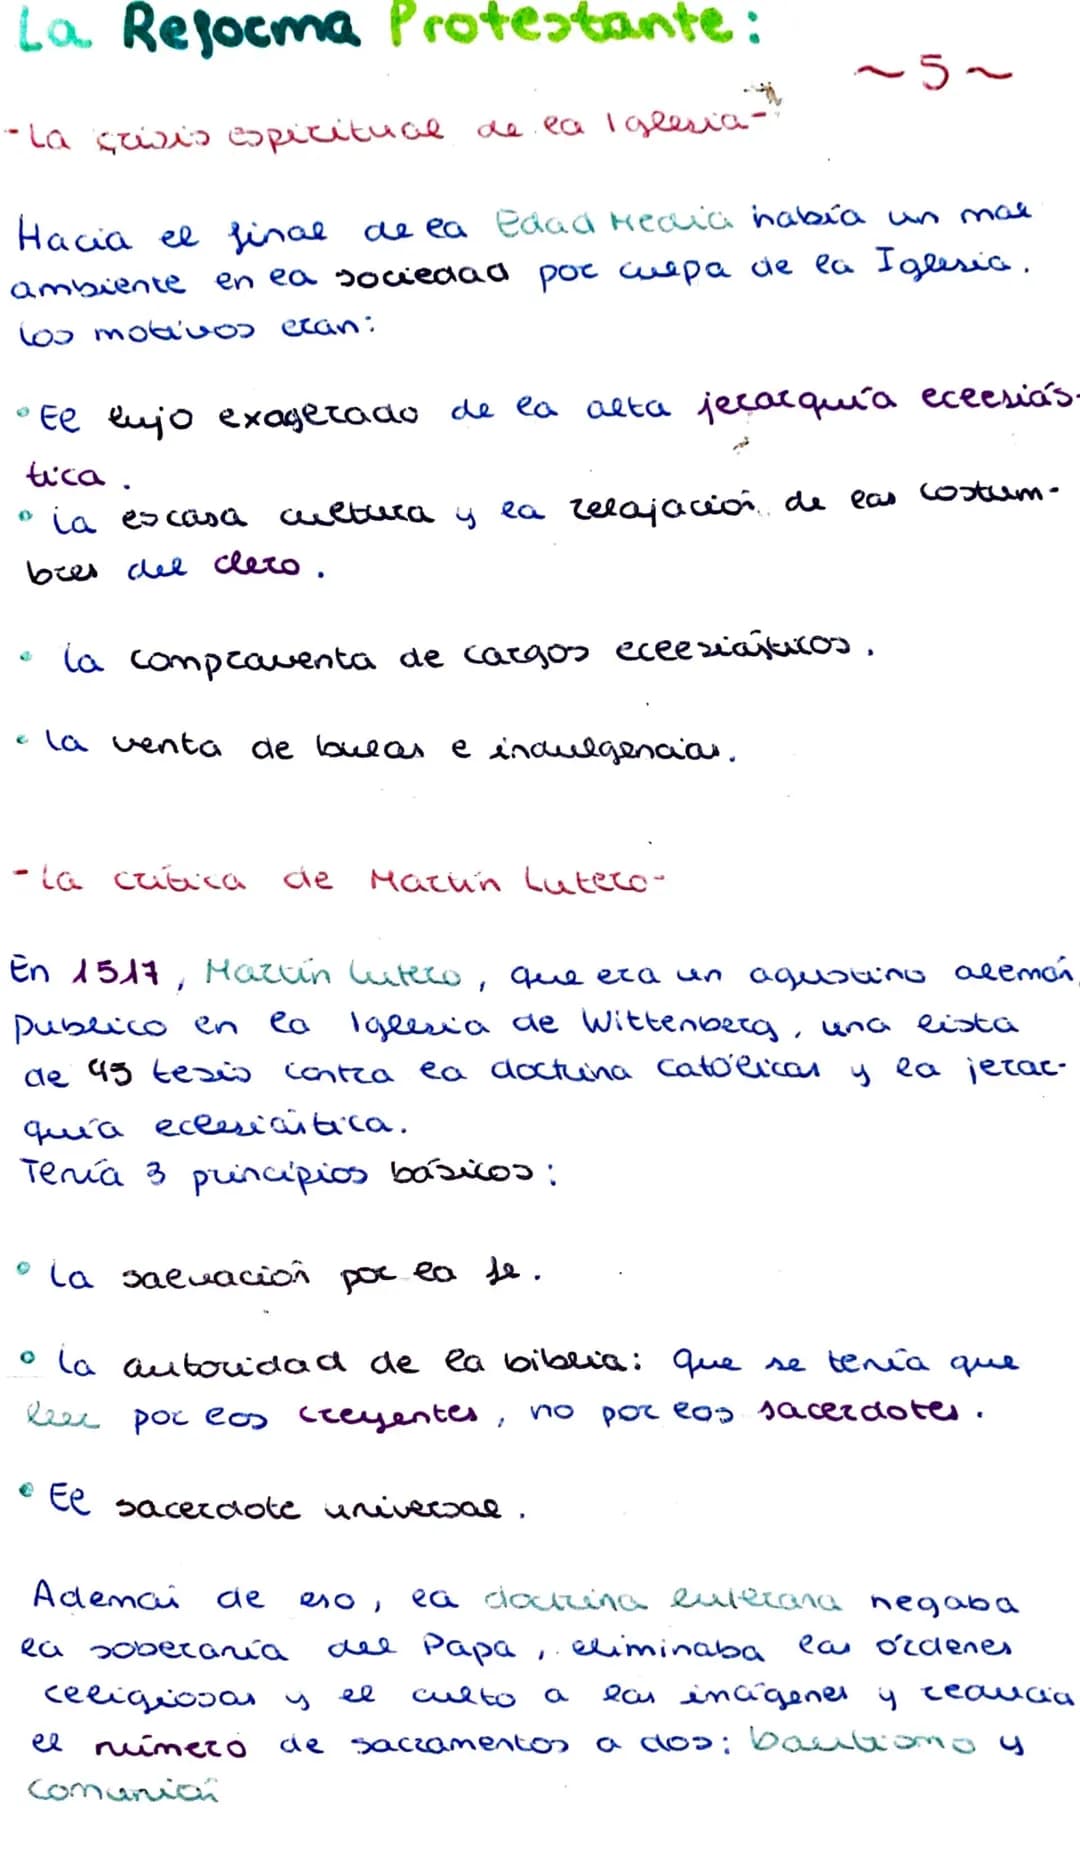 La Reforma Protestante:
~5~
-La crisis espiritual de la Iglesia-
Hacia el final de la Edad Media había un mal
ambiente en la sociedad por culpa de la Iglesia.
Los motivos eran:
• El lujo exagerado de la alta jerarquía eclesiás-
tica.
• La escasa cultura y la relajación de las costum-
bres del clero.
• La compraventa de cargos eclesiásticos.
• La venta de bulas e indulgencias.
-La crítica de Martín Lutero-
En 1517, Martín Lutero, que era un agustino alemán,
publico en la Iglesia de Wittenberg, una lista
de 95 tesis contra la doctrina católicas y la jerar-
quía eclesiástica.
Tenía 3 principios básicos:
• La salvación por la fe.
• La autoridad de la biblia: que se tenía que
leer por los creyentes, no por los sacerdotes.
• El sacerdote universal.
Además de eso, la doctrina luterana negaba
la soberanía del Papa, eliminaba las órdenes
religiosas y el culto a las imágenes y reducía
el número de sacramentos a dos: bautismo y
comunión